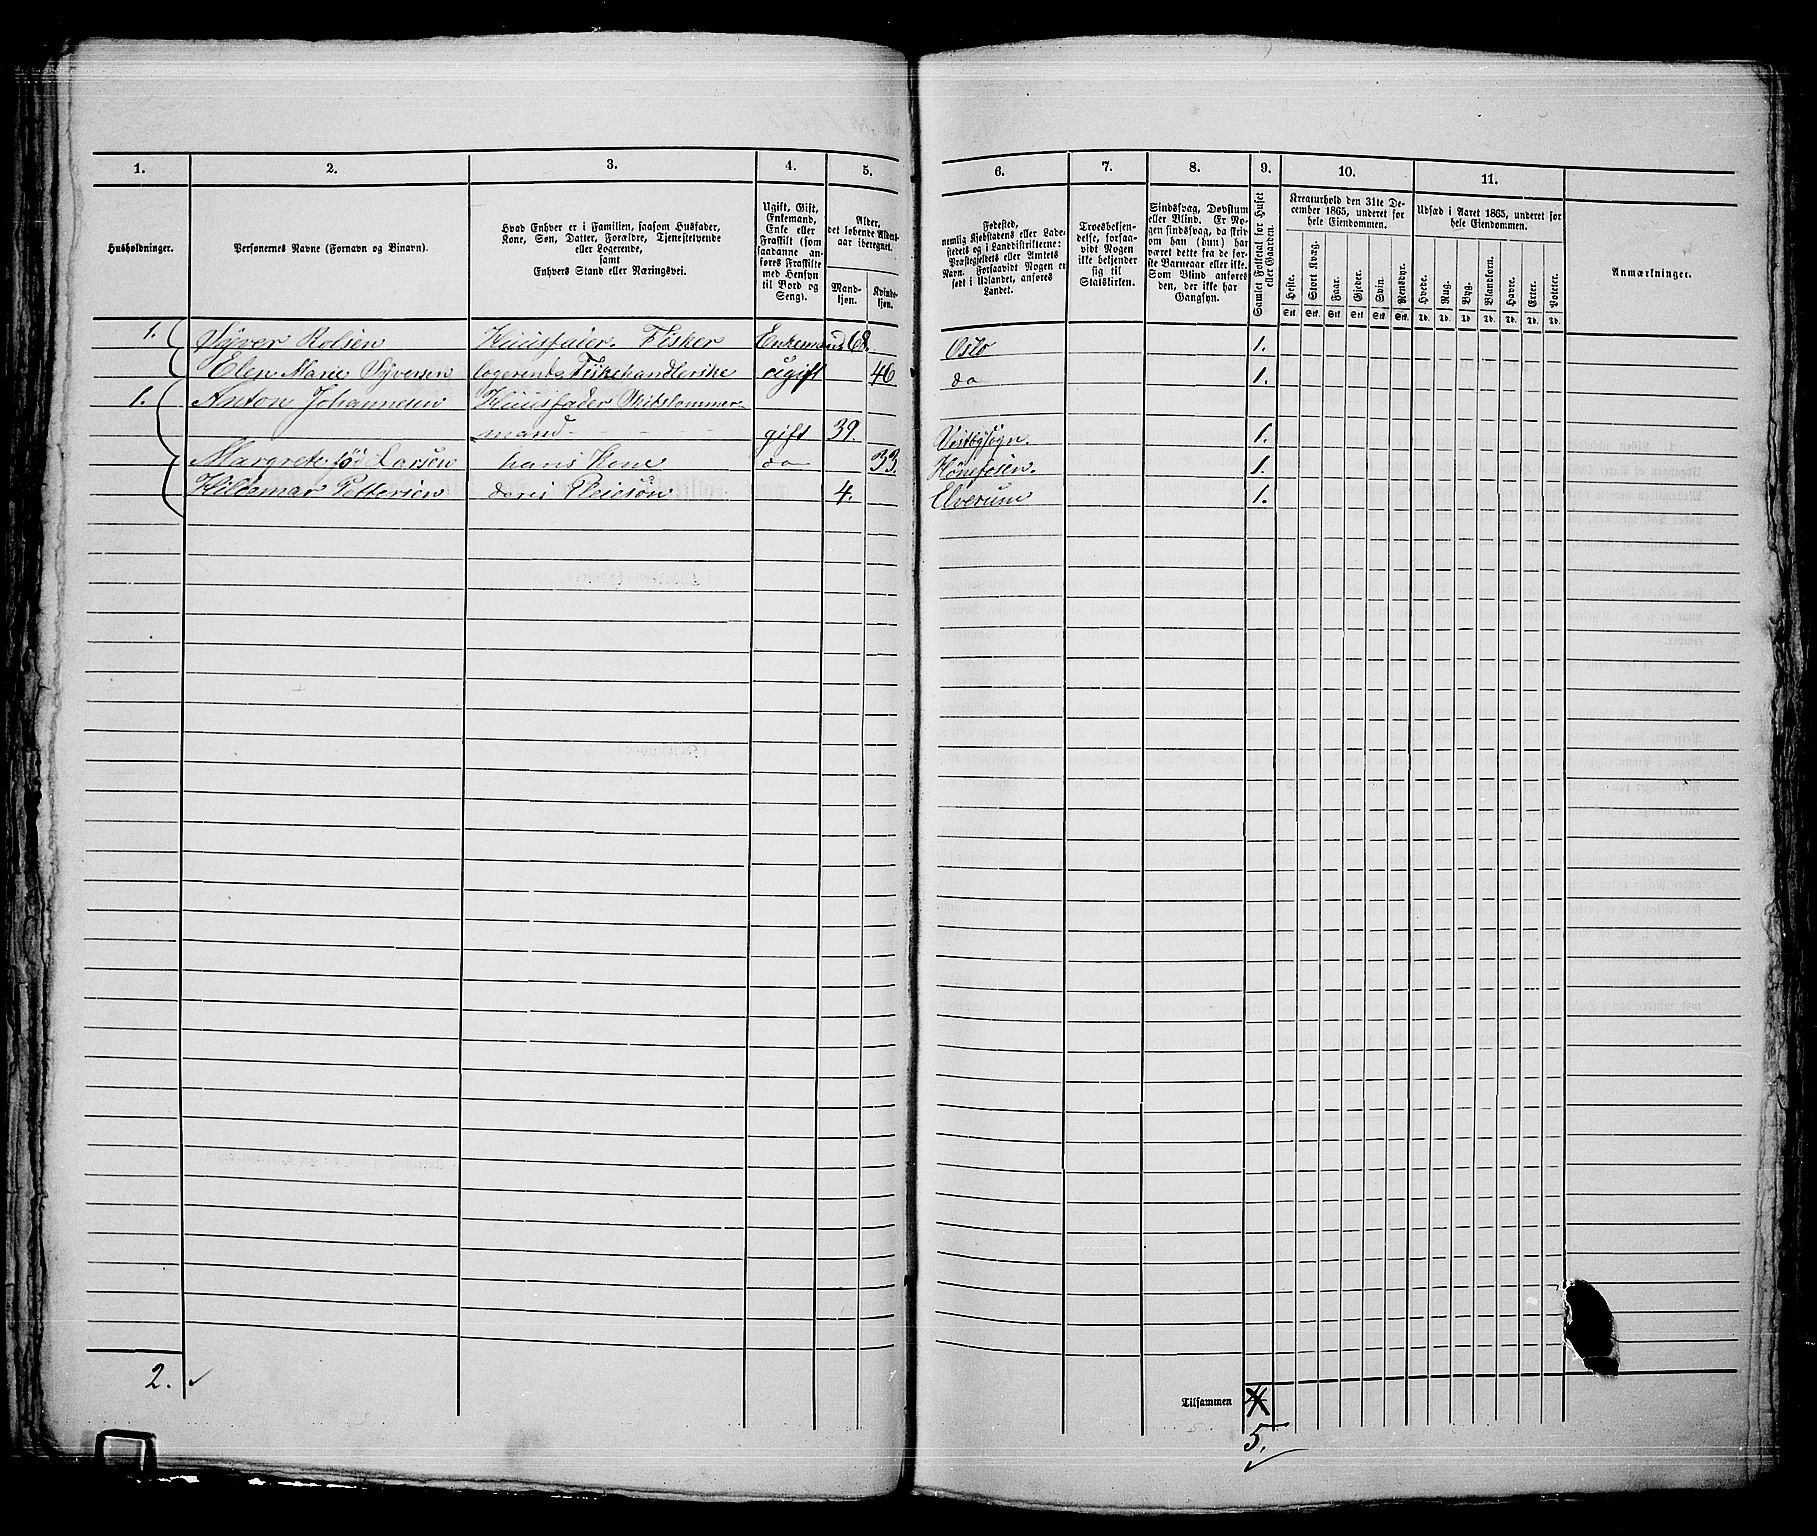 1. 2. 3. 4. 5. 6. 7. 8. 9. 10. 11.
Husholdninger.
Personernes Navne (Fornavn og Binavn).
Hvad Enhver er i Familien, saasom Husfader,
Kone, Søn, Datter, Forældre, Tjenestetyende
eller Logerende,
samt
Enhvers Stand eller Næringsvei.
Ugift, Gift,
Enkemand,
Enke eller
Fraskilt (som
saadanne an-
føres Fraskilte
med Hensyn
til Bord og
Seng).
Alder,
det løbende Alders-
aar iberegnet.
Mand-
kjøn.
Kvinde-
kjøn.
Fødested,
nemlig Kjøbstadens eller Lade-
stedets og i Landdistrikterne:
Præstegjeldets eller Amtets
Navn. Forsaavidt Nogen er
født i Udlandet, anføres
Landet.
Troesbekjen-
delse, forsaa-
vidt Nogen
ikke bekjender
sig til
Statskirken.
Sindssvag, Døvstum
eller Blind. Er No-
gen sindssvag, da skriv
om han (hun) har
været dette fra de før-
ste Barneaar eller ikke.
Som Blind anføres
den, der ikke har
Gangsyn.
Samlet Folketal for Huset
eller Gaarden.
Kreaturhold den 31te De-
cember 1865, underet for
hele Eiendommen.
Heste. Stort Kvæg. Faar. Gjeder. Svin. Rensdyr.
Stk. Stk. Stk. Stk. Stk. Stk.
Udsæd i Aaret 1865, underet for
hele Eiendommen.
Hvede. Rug. Byg. Blandkorn. Havre. Erter. Poteter.
Td. Td. Td. Td. Td. Td. Td.
Anmærkninger.
1. Syver Rolsen Huusfader Fisker Enkemand 68. Oslo 1.
Elen Marie Syversen logerende Fiskehandlerske ugift 46 do 1.
1. Anton Johannesen Huusfader Skibstømmer-
mand gift 39. Vestbysogn. 1.
Margrete fød Larsen hans Kone do 33. Hønefosen. 1.
Hildemar Pettersen deres Pleiesøn 4. Elverum 1.
2.
Tilsammen 4
5.